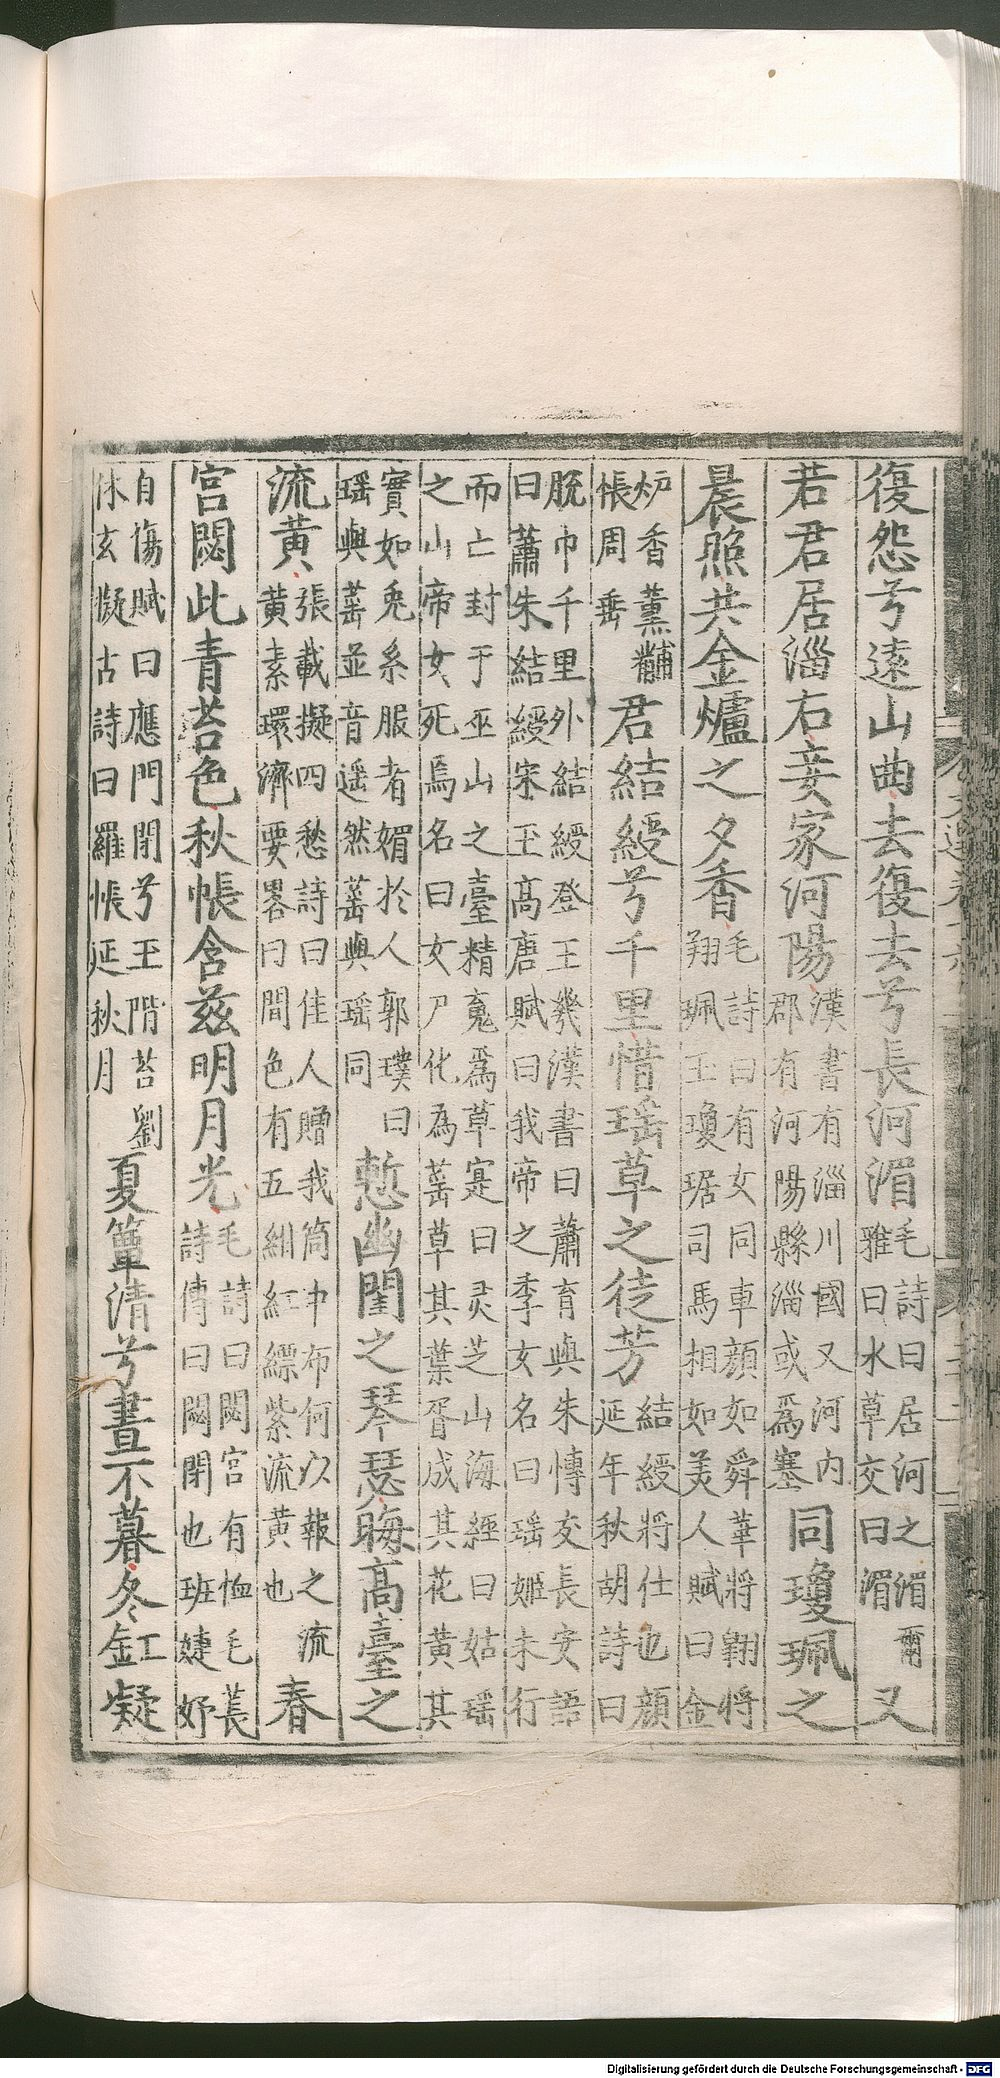 復怨兮遠山曲去復去兮長河湄毛詩曰居河之湄爾雅曰水草交曰湄又
若君居淄右妾家河陽漢書有淄川國又河内郡有河陽縣淄或爲塞同瓊珮之
晨照共金爐之夕香毛詩曰有女同車顔如舜華將翱將翔珮玉瓊琚司馬相如美人賦曰金
炉香薰黼帳周垂君結綬兮千里惜瑶草之徒芳結綬將仕也顔延年秋胡詩曰
脫巾千里外結綬登王畿漢書曰蕭育與朱慱友長安語曰蕭朱結綬宋玉高唐賦曰我帝之季女名曰瑶姬未行
而亡封于巫山之臺精䰟爲草寔曰灵芝山海經曰姑瑶之山帝女死焉名曰女尸化為䔄草其葉胥成其花黄其
實如兎糸服者媚於人郭璞曰瑶與䔄並音遥然䔄與瑶同慙幽閨之琴瑟晦髙臺之
流黄張載擬四愁詩曰佳人贈我筒中布何以報之流黄素環濟要畧曰間色有五紺紅縹紫流黄也春
宫閟此青苔色秋帳含兹明月光毛詩曰閟宫有恤毛萇詩傳曰閟閉也班婕妤
自傷賦曰應門閉兮玉階苔劉休玄擬古詩曰羅帳延秋月夏簟清兮晝不暮冬釭凝
Digitalisierung gefördert durch die Deutsche Forschungsgemeinschaft - DFG